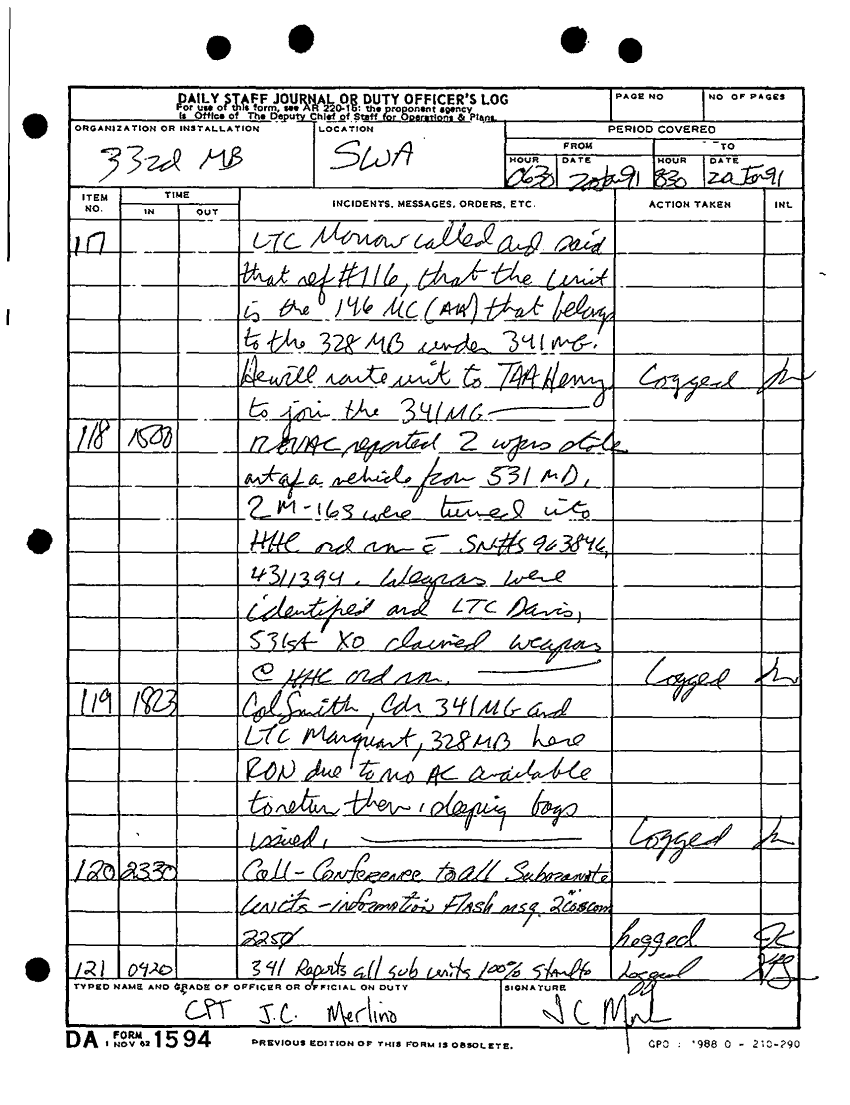 DAILY STAFF JOURNAL OR DUTY OFFICER'S LOG
For use of this form, see AR 220-15: the proponent agency
is Office of The Deputy Chief of Staff for Operations & Plans.
PAGE NO
NO OF PAGES
ORGANIZATION OR INSTALLATION
33rd MB
LOCATION
SWA
PERIOD COVERED
FROM
TO
HOUR
DATE
HOUR
DATE
0630
20 Jan 91
830
20 Jan 91
ITEM NO.
TIME
IN
OUT
INCIDENTS, MESSAGES, ORDERS, ETC.
ACTION TAKEN
INL
117
LTC Morrow called and said
that ref #116, that the unit
is the 146 MC (AA) that belongs
to the 328 MB under 341 MG.
He will route unit to TAA Henry
Logged
to join the 341 MG
118 1500
reported 2 wpns stole
out of a vehicle from 531 MD,
2 M-16s were turned into
HHC ord rm c̄ SN#s 963846,
4311394. Weapons were
identified and LTC Davis,
531st XO claimed weapons
@ HHC ord rm.
Logged
119 1823
Col Smith, Cdr 341 MG and
LTC Marquart, 328 MB here
RON due to no AC available
to return them, sleeping bags
issued.
Logged
120 2330
Call-Conference to all Subordinate
units - information Flash msg. 2
2250
Logged
121 0420
341 Reports all sub units 100% Stand to
Logged
TYPED NAME AND GRADE OF OFFICER OR OFFICIAL ON DUTY
CPT J.C. Merlino
SIGNATURE
DA FORM 1 NOV 62 1594
PREVIOUS EDITION OF THIS FORM IS OBSOLETE.
GPO : 1988 O - 210-290